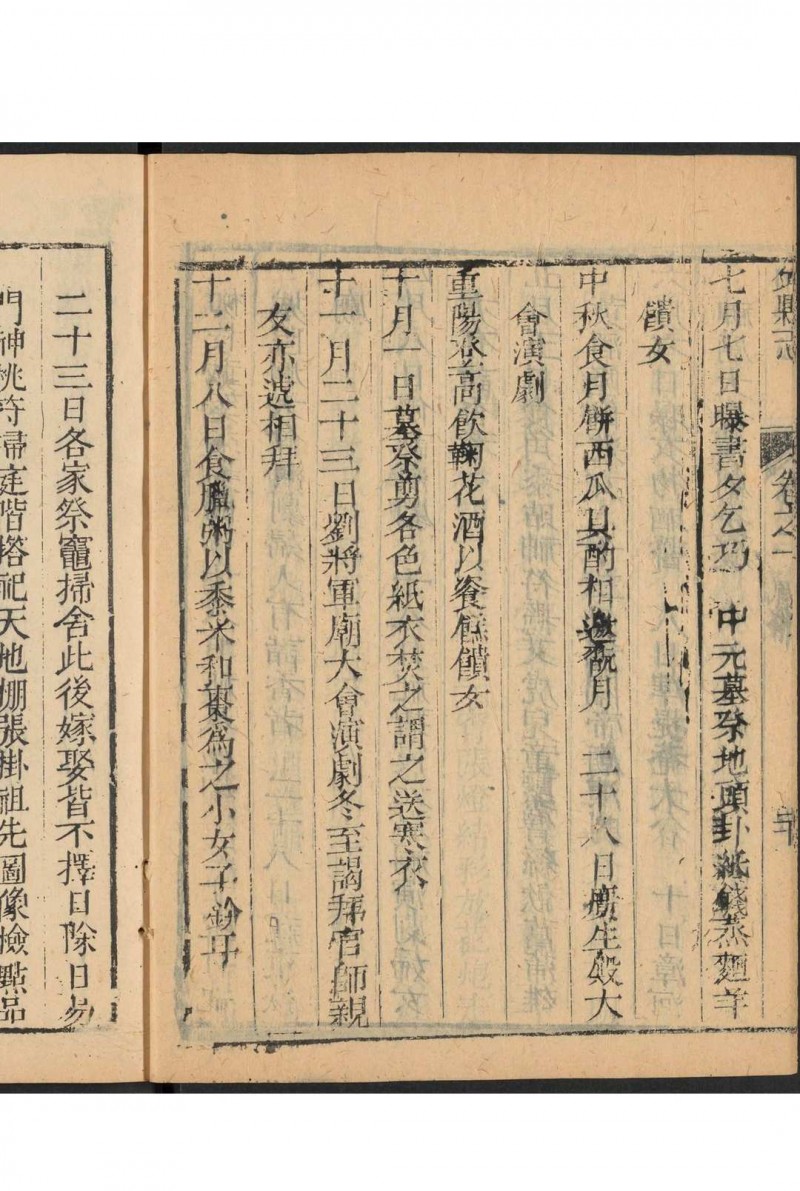 卷之一
七月七日曝書夕乞巧 中元墓祭地頭卦紙錢蒸麵羊
饋女
中秋食月餅西瓜具酌相邀翫月 二十八日廣生殿大
會演劇
重陽登高飲鞠花酒以餈餻饋女
十月一日墓祭剪各色紙衣焚之謂之送寒衣
十一月二十三日劉將軍廟大會演劇冬至謁拜官師親
友亦遞相拜
十二月八日食臘粥以黍米和棗為之小女子鈴耳
二十三日各家祭竈掃舍此後嫁娶皆不擇日除日易
門神桃符掃庭階搭祀天地棚張掛祖先圖像檢點品